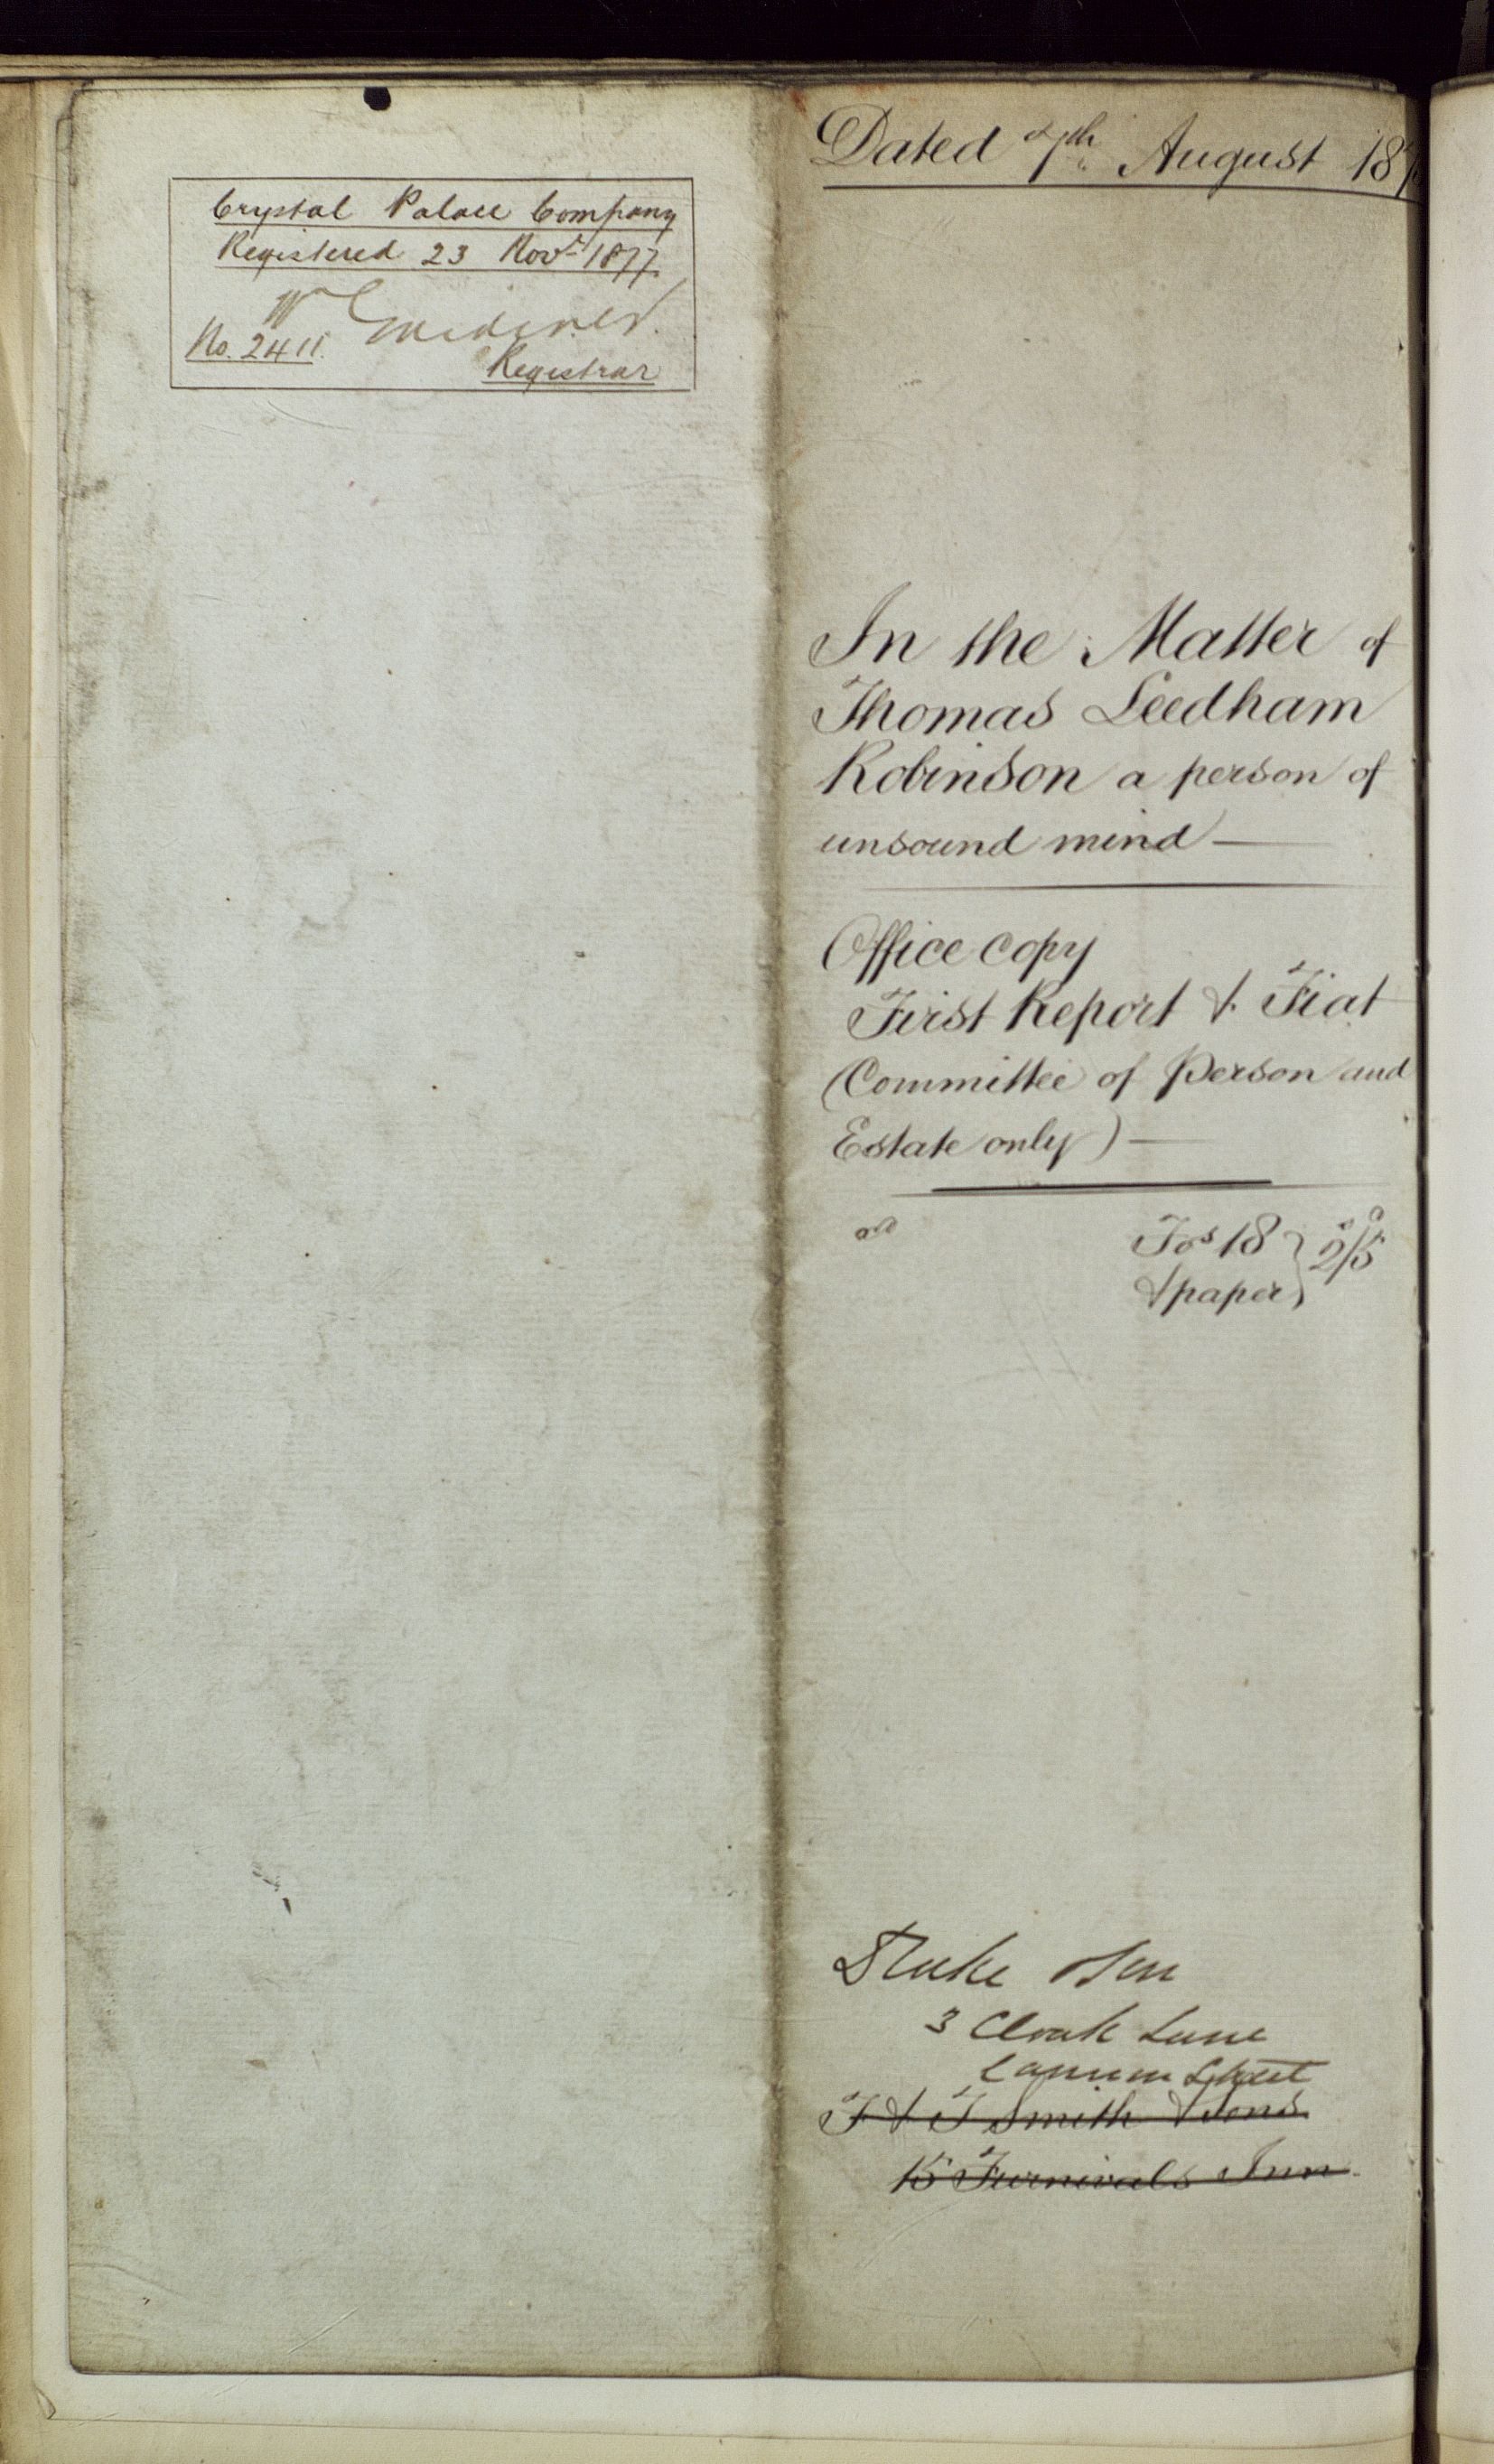 Crystal Palace Company
Registered 23 Novr 1877
Wm Gardiner
No. 2411.
Registrar
Dated 7th August 187
In the Matter of
Thomas Leedham
Robinson a person of
unsound mind —
Office copy
First Report & Fiat
(Committee of Person and
Estate only) —
Fos 18
& paper
2/5
3 Cloak Lane
Cannon Street
F & T Smith & Sons
15 Furnivals Inn